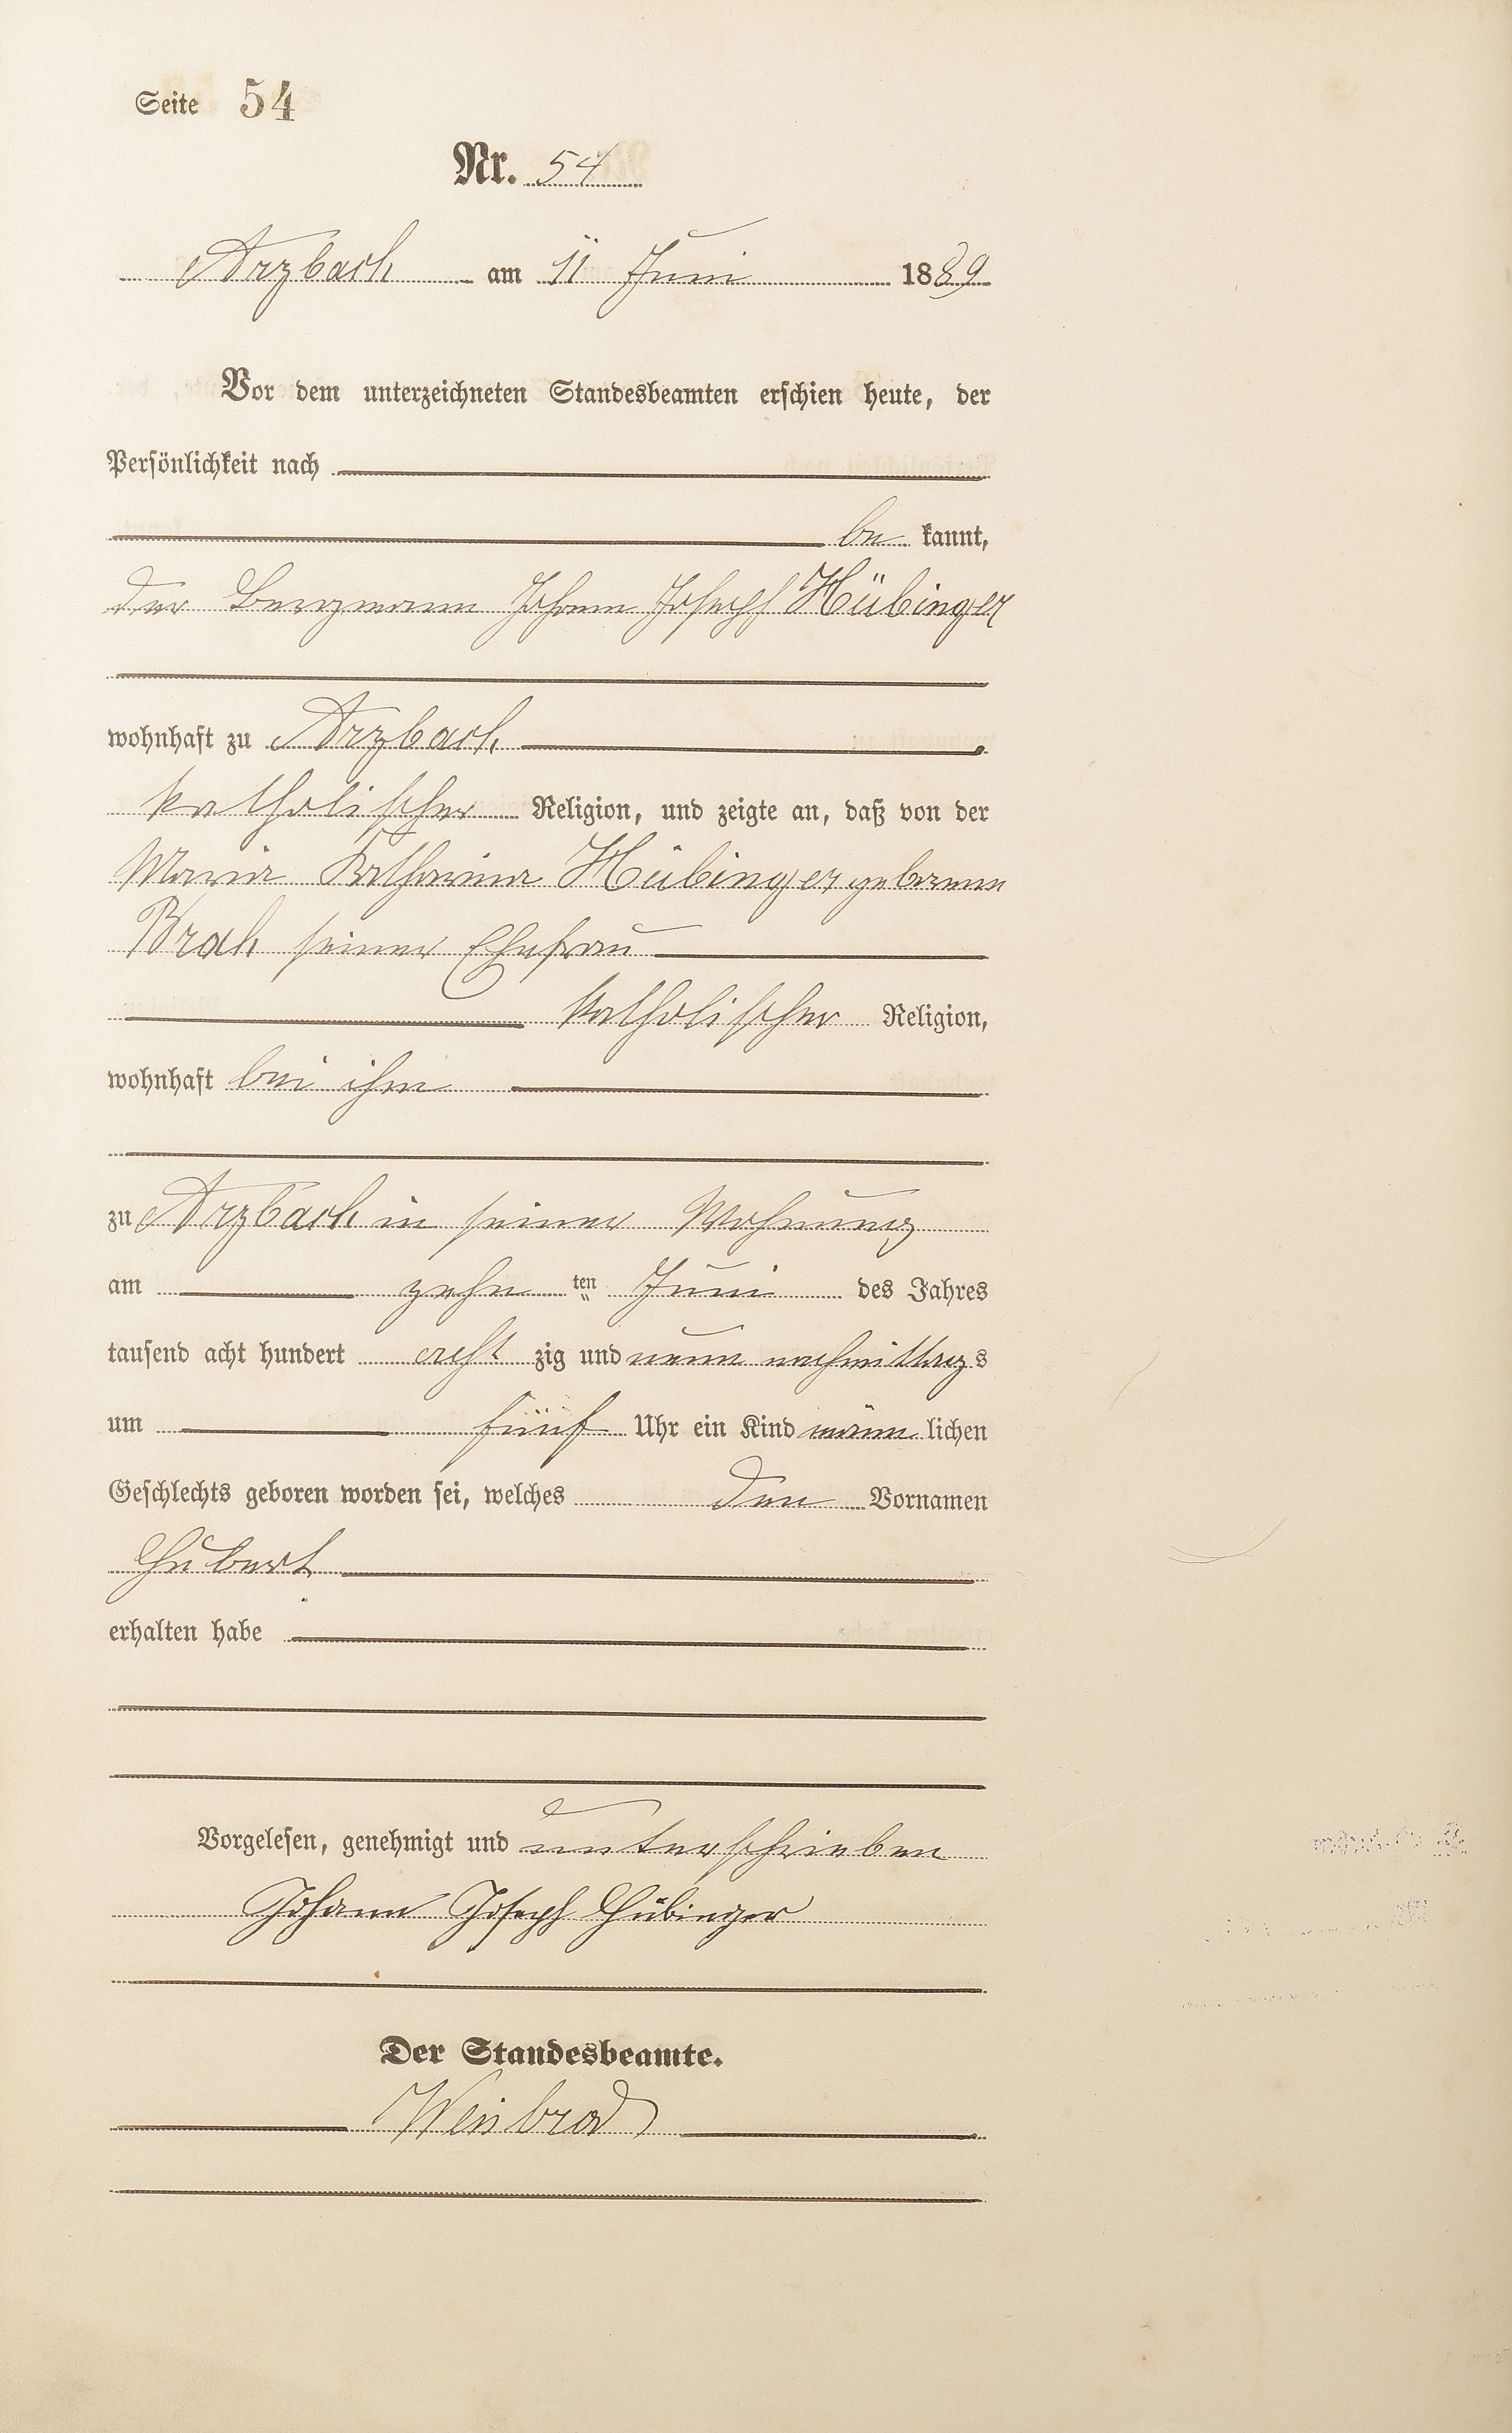 Seite 54
Nr. 54
Arzbach am 11 Juni 1889
Vor dem unterzeichneten Standesbeamten erschien heute, der
Persönlichkeit nach
be kannt,
der Bergmann Johann Joseph Hübinger
wohnhaft zu Arzbach
katholischer Religion, und zeigte an, daß von der
Maria Katharina Hübinger geborenen
Brah seiner Ehefrau
katholischer Religion,
wohnhaft bei ihm
zu Arzbach in seiner Wohnung
am zehn ten Juni des Jahres
tausend acht hundert acht zig und neun nachmittags
um fünf Uhr ein Kind männ lichen
Geschlechts geboren worden sei, welches den Vornamen
Hubert
erhalten habe
Vorgelesen, genehmigt und unterschrieben
Johann Joseph Hübinger
Der Standesbeamte.
Weisbrod